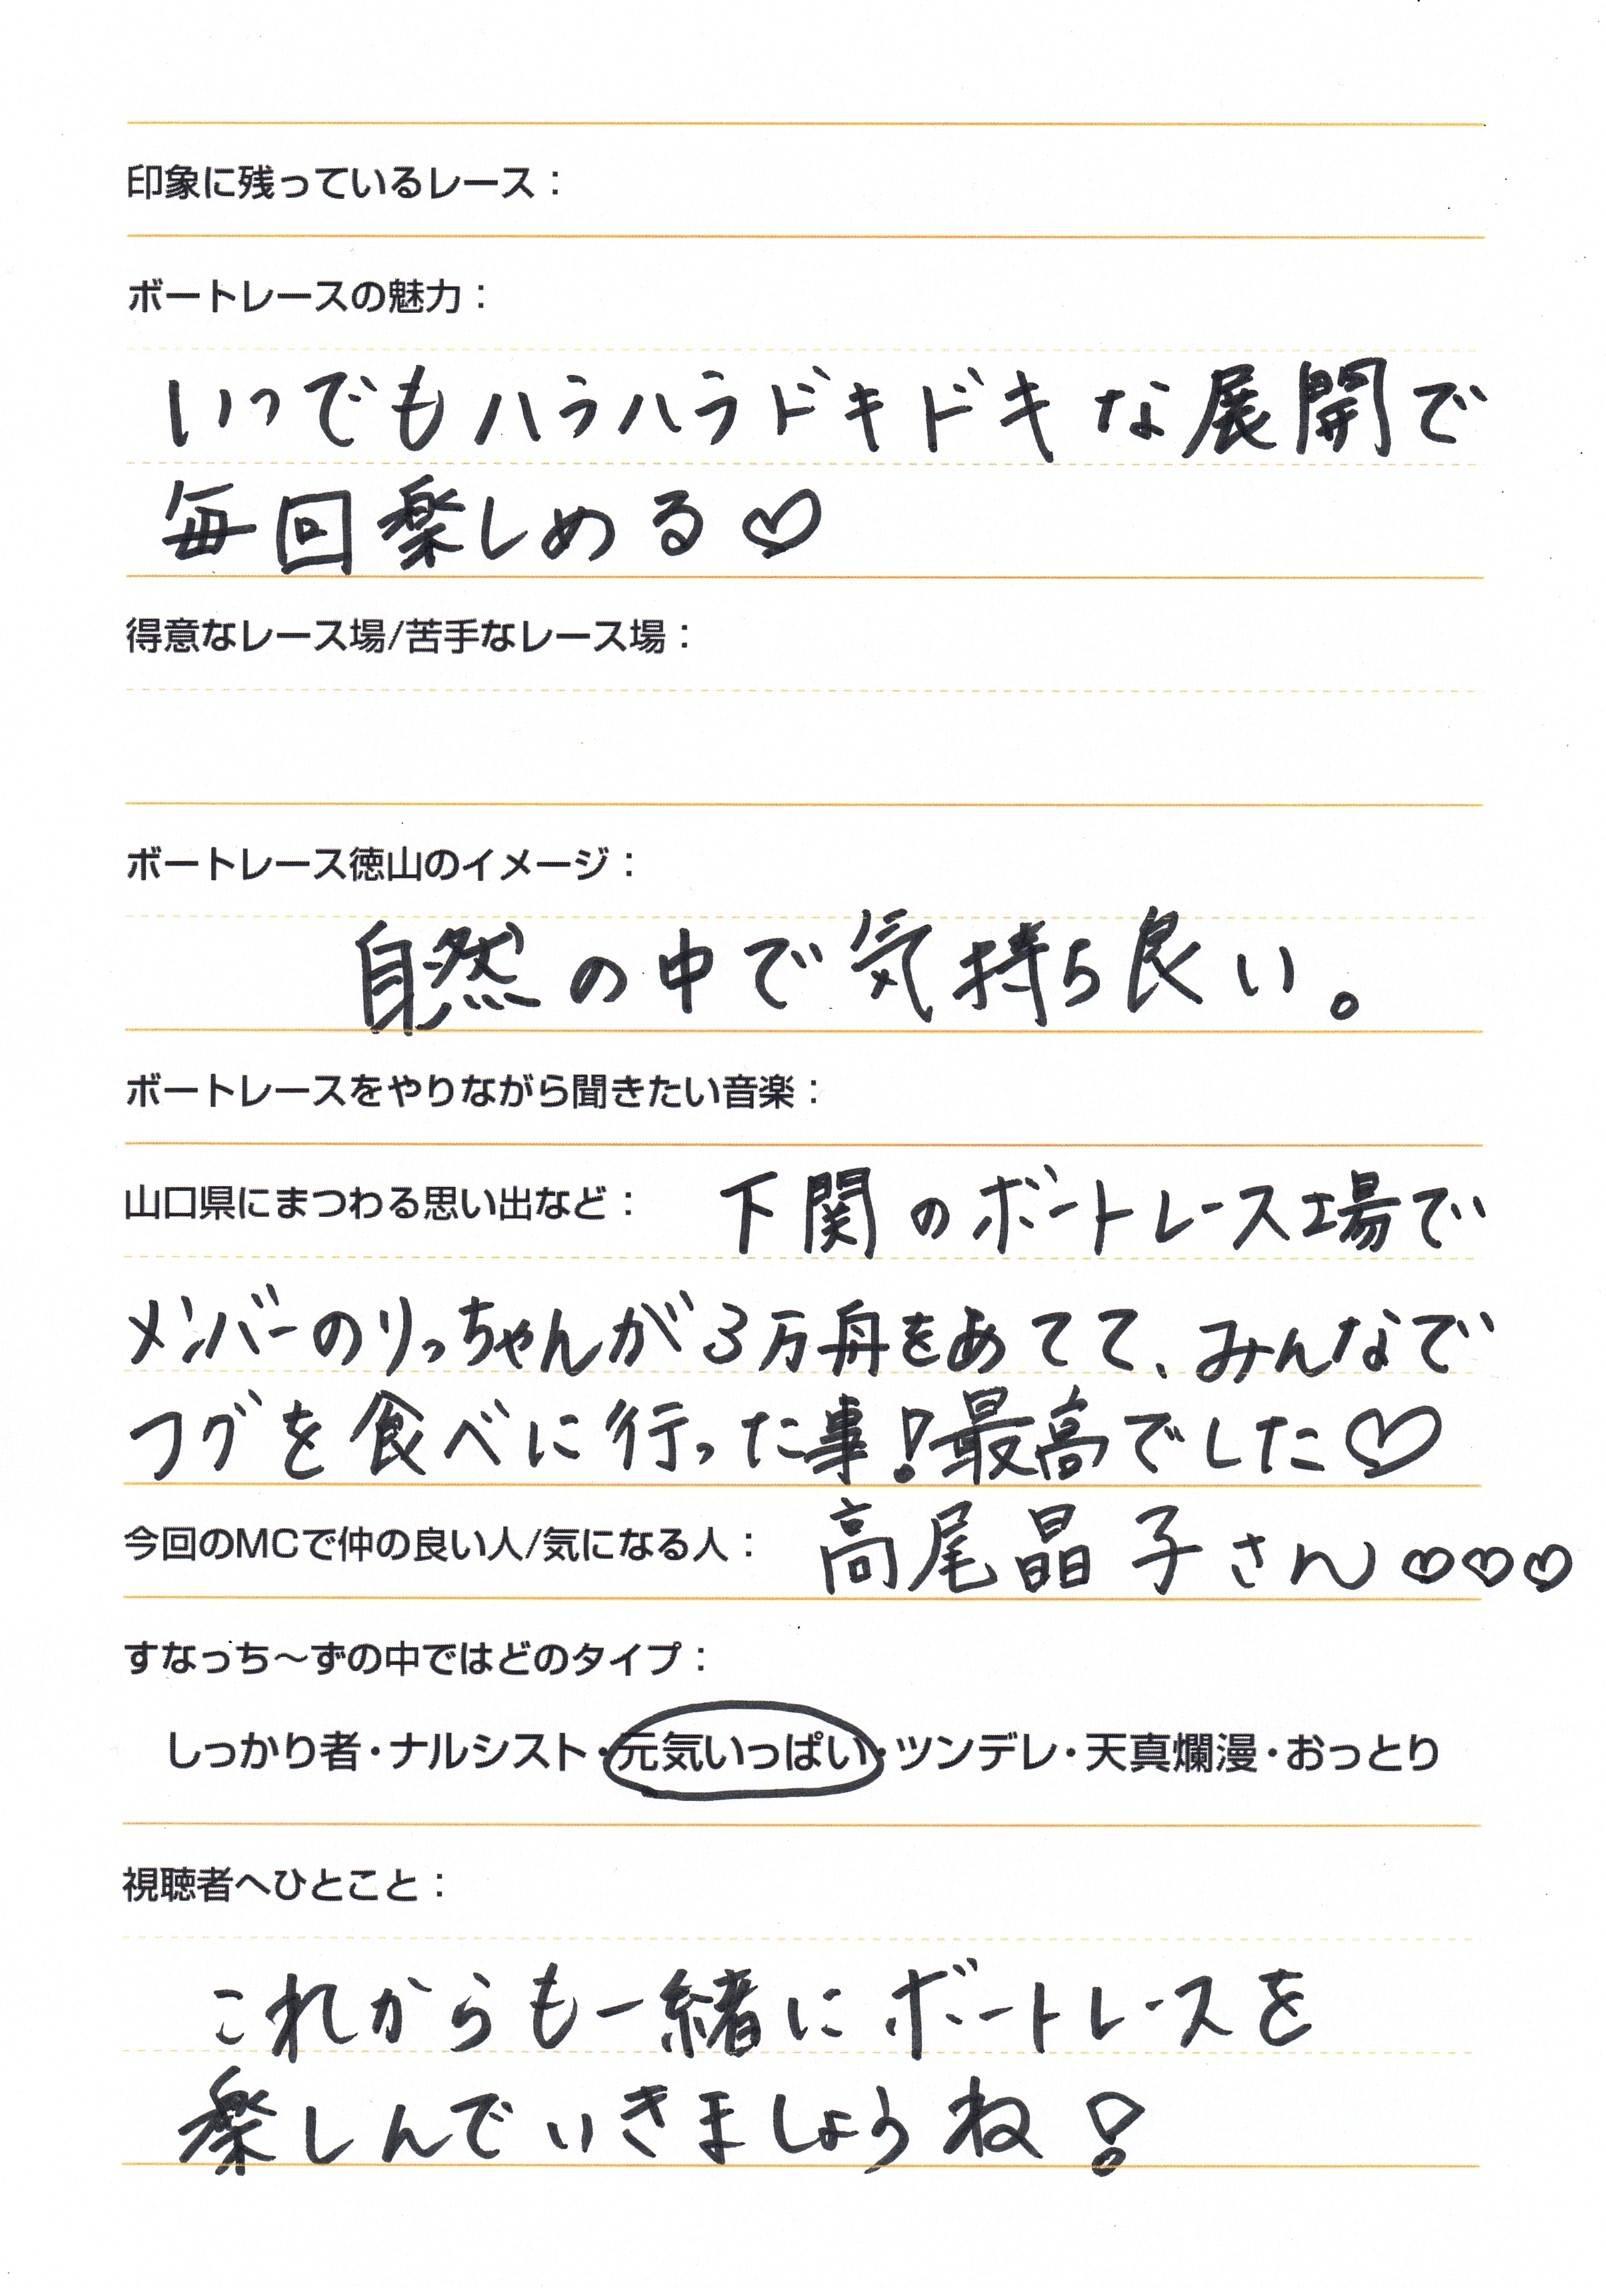 印象に残っているレース：
ボートレースの魅力：
いつでもハラハラドキドキな展開で
毎回楽しめる♡
得意なレース場/苦手なレース場：
ボートレース徳山のイメージ：
自然の中で気持ち良い。
ボートレースをやりながら聞きたい音楽：
山口県にまつわる思い出など： 下関のボートレース場で
メンバーのりっちゃんが3万舟をあてて、みんなで
フグを食べに行った事!最高でした♡
今回のMCで仲の良い人/気になる人： 高尾晶子さん♡♡♡
すなっち～ずの中ではどのタイプ：
しっかり者・ナルシスト・元気いっぱい・ツンデレ・天真爛漫・おっとり
視聴者へひとこと：
これからも一緒にボートレースを
楽しんでいきましょうね!